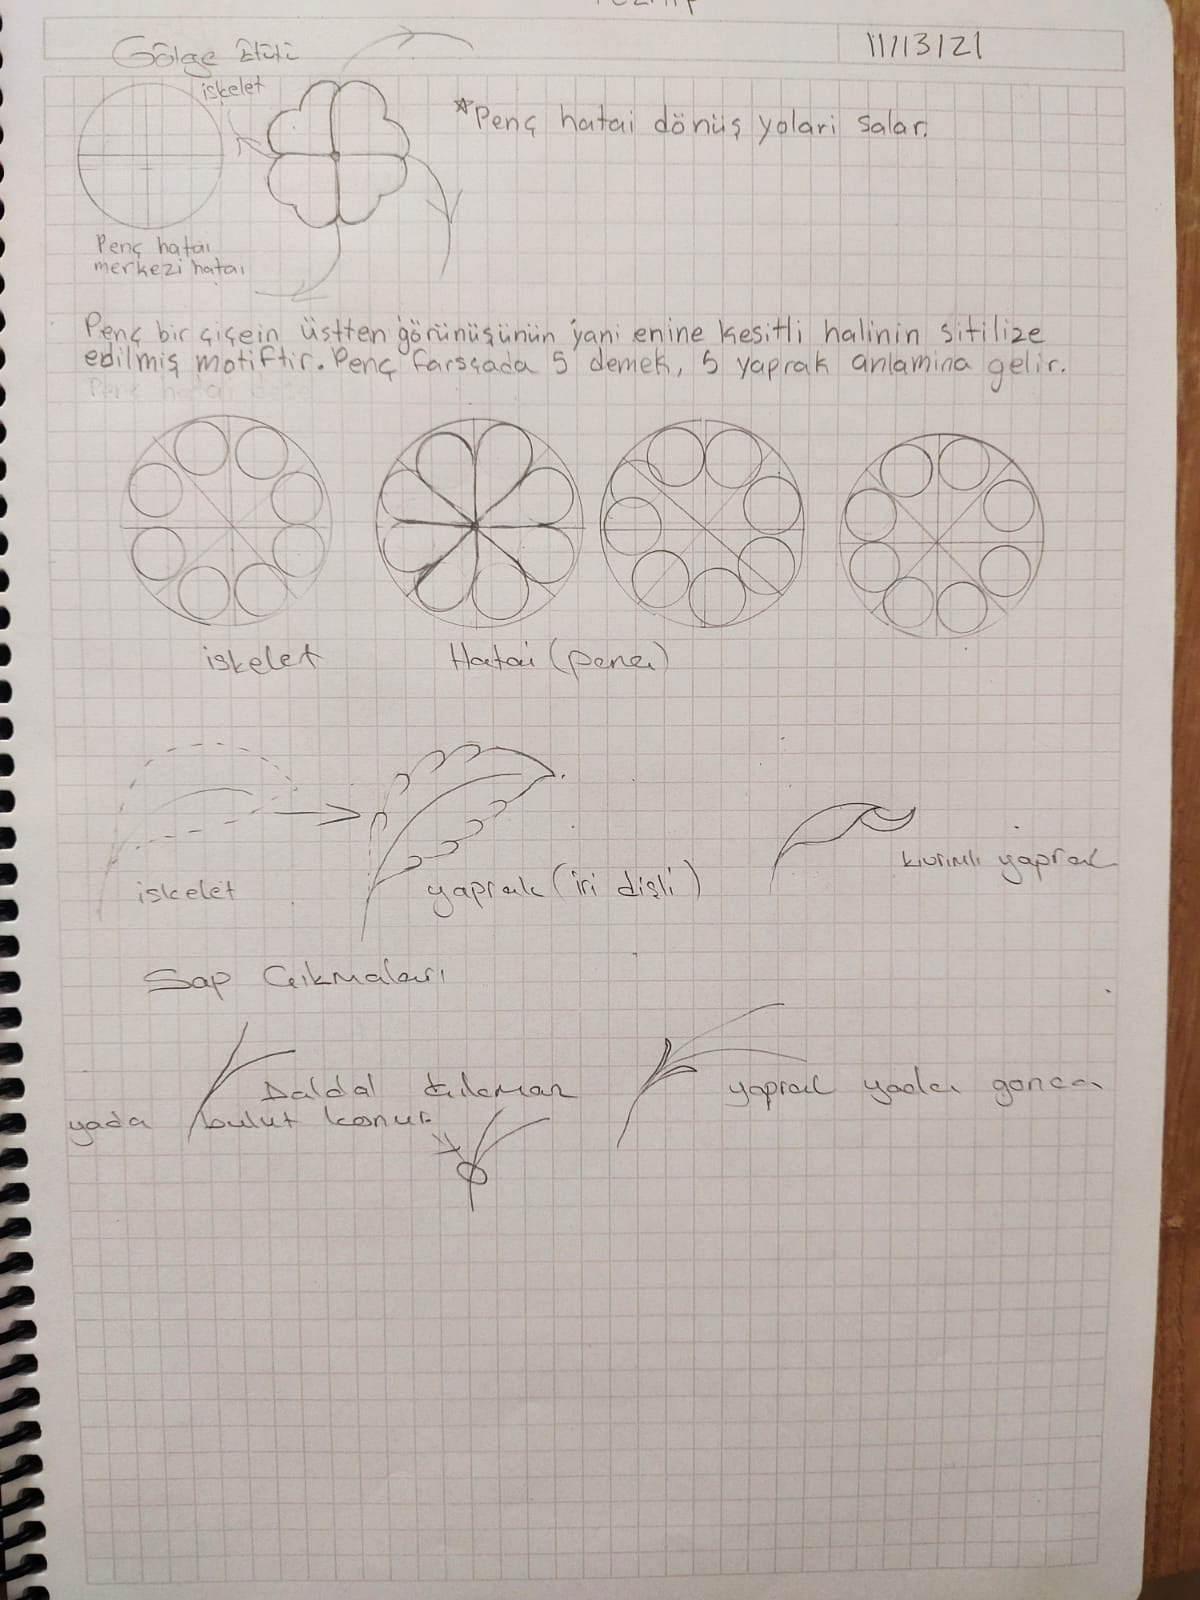 Gölge Etüti
11/13/21
iskelet
*Penç hatai dönüş yolari salar.
Penç hatai
merkezi hatai
Penç bir çiçein üstten görünüşünün yani enine kesitli halinin sitilize
edilmiş motiftir. Penç farsçada 5 demek, 5 yaprak anlamina gelir.
iskelet
Hatai (penç)
iskelet
yaprak (iri dişli)
kıvrımlı yaprak
Sap Çıkmaları
Daldal
yada bulut konur.
yaprak yada gonca